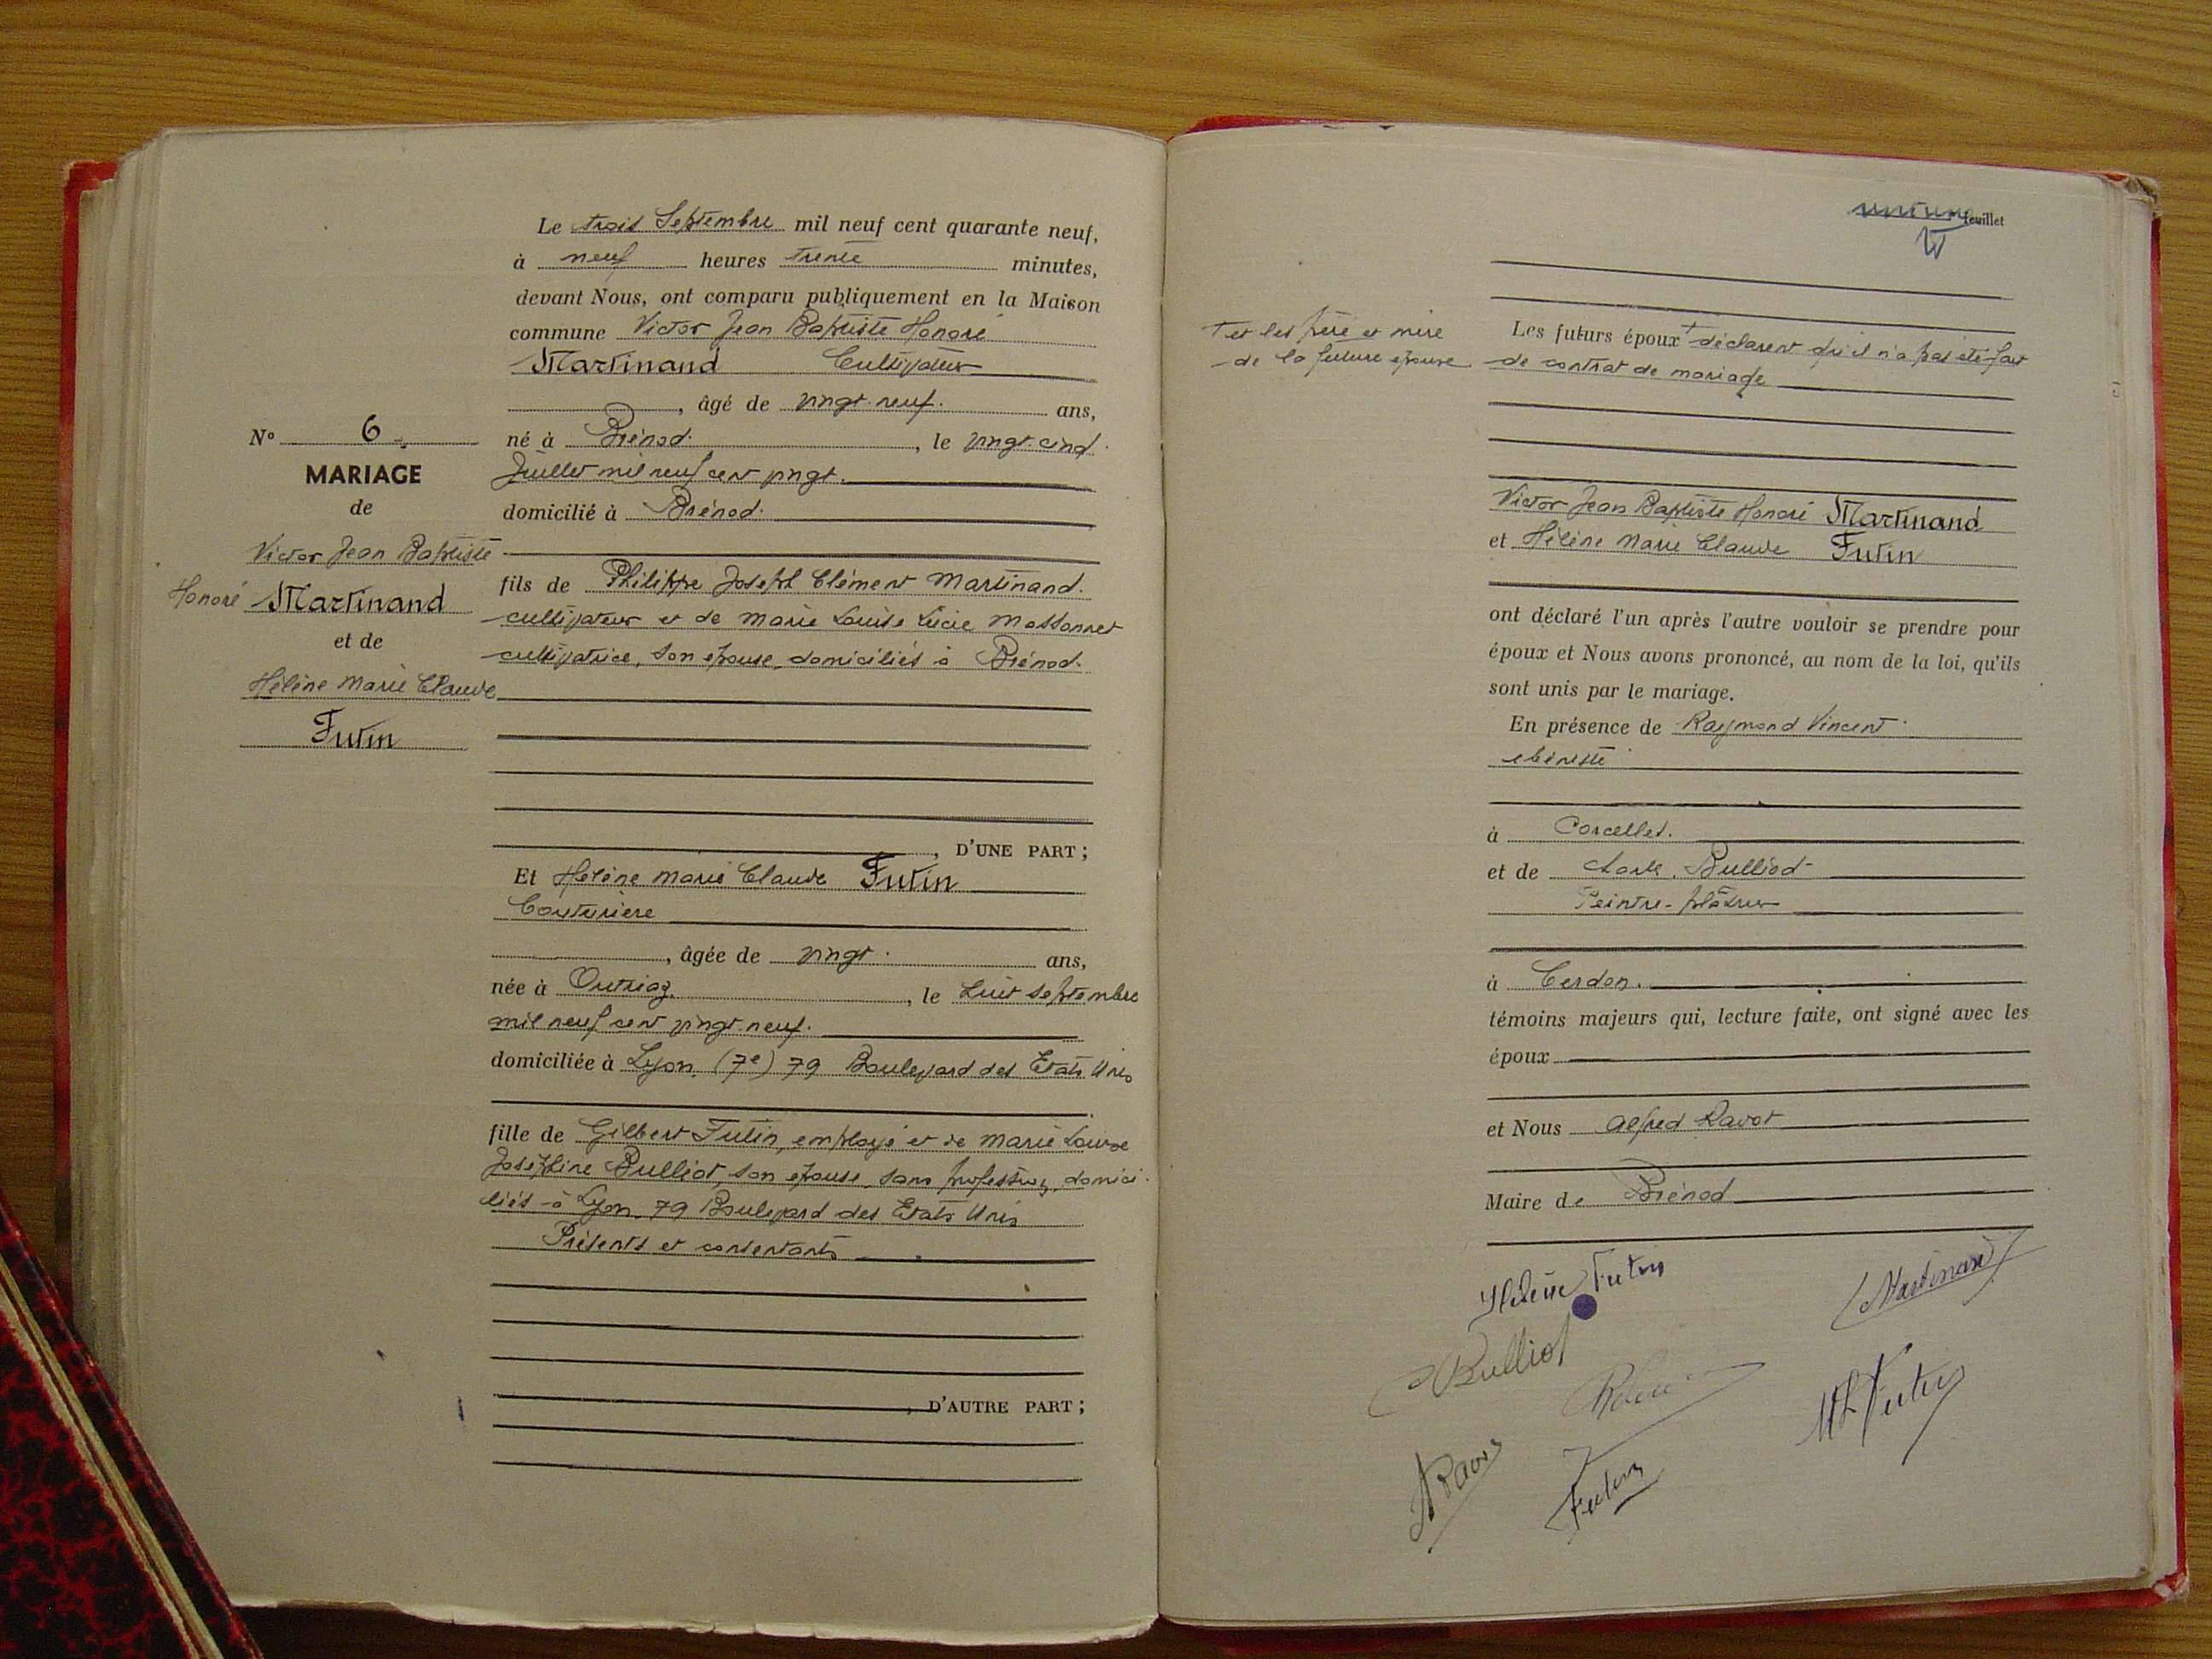 Le trois Septembre mil neuf cent quarante neuf,
à neuf heures trente minutes,
devant Nous, ont comparu publiquement en la Maison
commune Victor Jean Baptiste Honoré
Martinand Cultivateur
, âgé de vingt-neuf. ans,
né à Brénod. , le vingt-cinq
Juillet mil neuf cent vingt.
domicilié à Brénod.
fils de Philippe Joseph Clément Martinand.
cultivateur et de Marie Louise Lucie Massonnet
cultivatrice, son épouse, domiciliés à Brénod.
, D'UNE PART ;
Et Hélène Marie Claude Futin
Couturière
, âgée de vingt. ans,
née à Outriaz , le huit septembre
mil neuf cent vingt-neuf.
domiciliée à Lyon (7e) 79 Boulevard des Etats Unis
fille de Gilbert Futin, employé et de Marie Louise
Joséphine Bulliot, son épouse, sans profession, domici-
liés à Lyon 79 Boulevard des Etats Unis
Présents et consentants
, D'AUTRE PART ;
No 6
MARIAGE
de
Victor Jean Baptiste
Honoré Martinand
et de
Hélène Marie Claude
Futin
feuillet
+ et les père et mère
de la future épouse
Les futurs époux + déclarent qu'il n'a pas été fait
de contrat de mariage
Victor Jean Baptiste Honoré Martinand
et Hélène Marie Claude Futin
ont déclaré l'un après l'autre vouloir se prendre pour
époux et Nous avons prononcé, au nom de la loi, qu'ils
sont unis par le mariage.
En présence de Raymond Vincent
ébéniste
à Corcelles.
et de Bulliod
Peintre-plâtrier
à Cerdon.
témoins majeurs qui, lecture faite, ont signé avec les
époux
et Nous Alfred Ravot
Maire de Brénod
Hélène Futin
Martinand
Bulliot
ML Futin
Futin